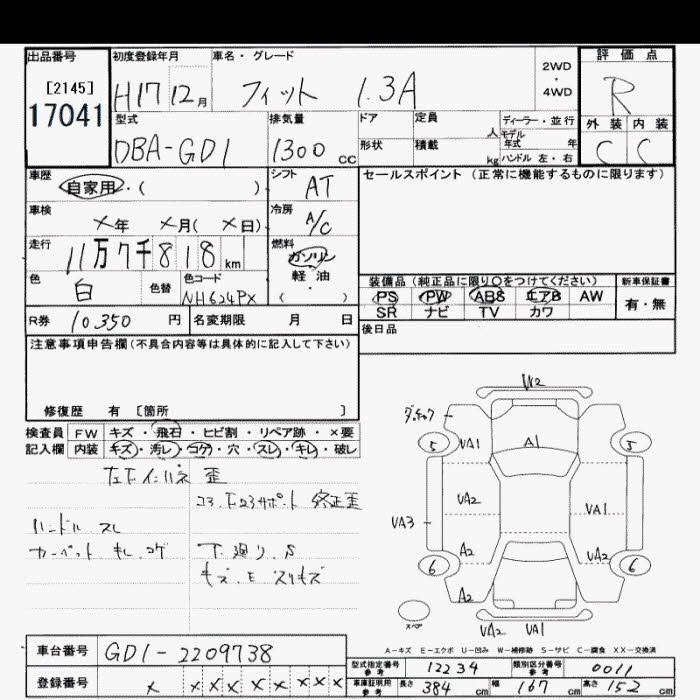 出品番号 初度登録年月 車名・グレード 評価点
[2145] H17 12月 フィット 1.3A 2WD ・ 4WD R
17041 型式 排気量 ドア 定員 ディーラー・並行 外装 内装
DBA-GD1 1300 cc 形状 積載 人 kg モデル年式 年 ハンドル 左・右 C C
車歴 自家用・( ) シフト AT セールスポイント (正常に機能するものに限ります)
車検 ×年 ×月( ×日) 冷房 A/C
走行 11万7千818km 燃料 ガソリン
軽・油
色 白 色替 色コード NH624PX ( ) 装備品(純正品に限り〇をつけてください) 新車保証書
PS PW ABS エアB AW 有・無
SR ナビ TV カワ
R券 10350 円 名変期限 月 日 後日品
注意事項申告欄(不具合内容等は具体的に記入して下さい)
修復歴 有 [箇所 ]
検査員 FW キズ・飛石・ヒビ割・リペア跡・×要
記入欄 内装 キズ・汚レ・コゲ・穴・スレ・キレ・破レ
歪
コアサポート 歪
ハンドル スレ
カーペット キレ、コゲ 下廻り、S
キズ・E スリキズ
VA2
5 VA1 A1 5
VA2 VA1
VA3
A2 VA2
6 A2 6
スペア VA2 VA1
A-キズ E-エクボ U-凹み W-補修跡 S-サビ C-腐食 XX-交換済
車台番号 GD1-2209738 型式指定番号 参考 12234 類別区分番号 参考 0011
登録番号 × ××××××××× 車庫証明用 参考 長さ 384 cm 幅 167 cm 高さ 152 cm